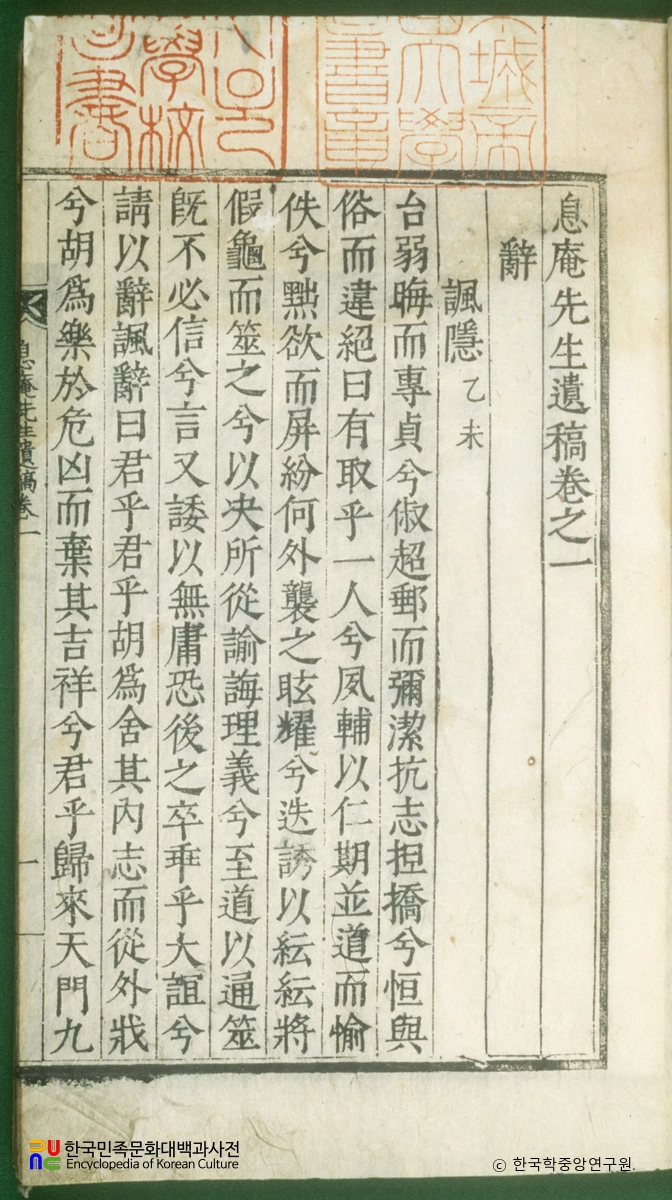 息庵先生遺稿卷之一
辭
諷隱 乙未
台弱晦而專貞兮俶超郵而彌潔抗志担撟兮恒與
俗而違絕曰有取乎一人兮夙輔以仁期並道而愉
佚兮黜欲而屏紛何外襲之眩耀兮迭誘以紜紜將
假龜而筮之兮以決所從諭誨理義兮至道以通筮
旣不必信兮言又諉以無庸恐後之卒乖乎大誼兮
請以辭諷辭曰君乎君乎胡爲舍其內志而從外戕
兮胡爲樂於危凶而棄其吉祥兮君乎歸來天門九
息庵先生遺稿卷一
一
한국민족문화대백과사전
Encyclopedia of Korean Culture
ⓒ 한국학중앙연구원.